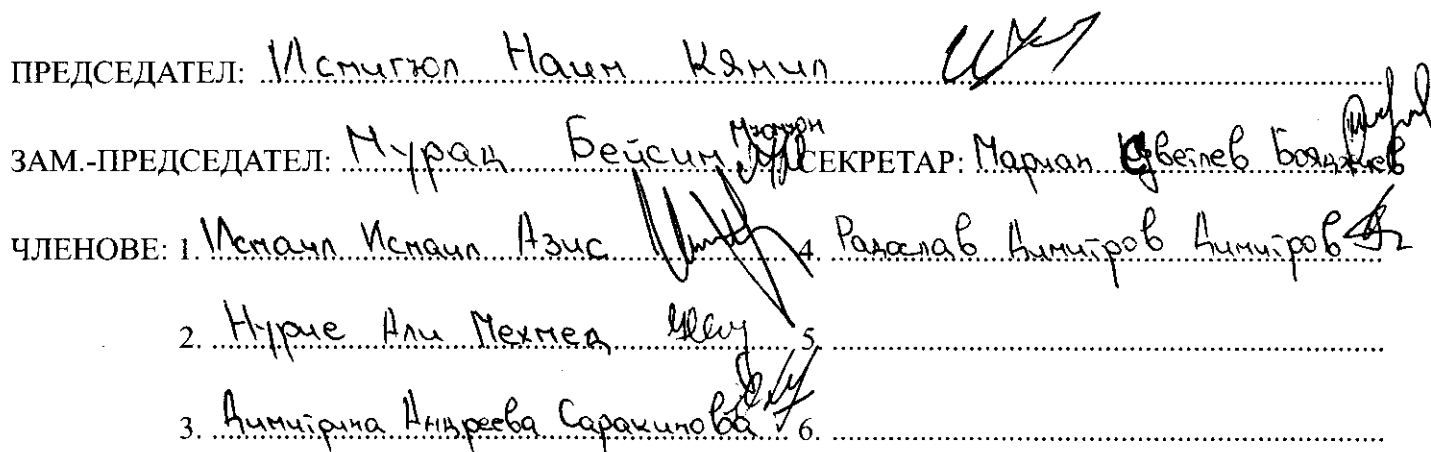 ПРЕДСЕДАТЕЛ: Исмигюл Наим Кямил
ЗАМ.-ПРЕДСЕДАТЕЛ: Мурад Бейсим СЕКРЕТАР: Мариан Цветлев Бояджиев
ЧЛЕНОВЕ: 1. Исмаил Исмаил Азис 4. Радослав Димитров Димитров
2. Нурие Али Мехмед 5.
3. Димитрина Андреева Саракинова 6.